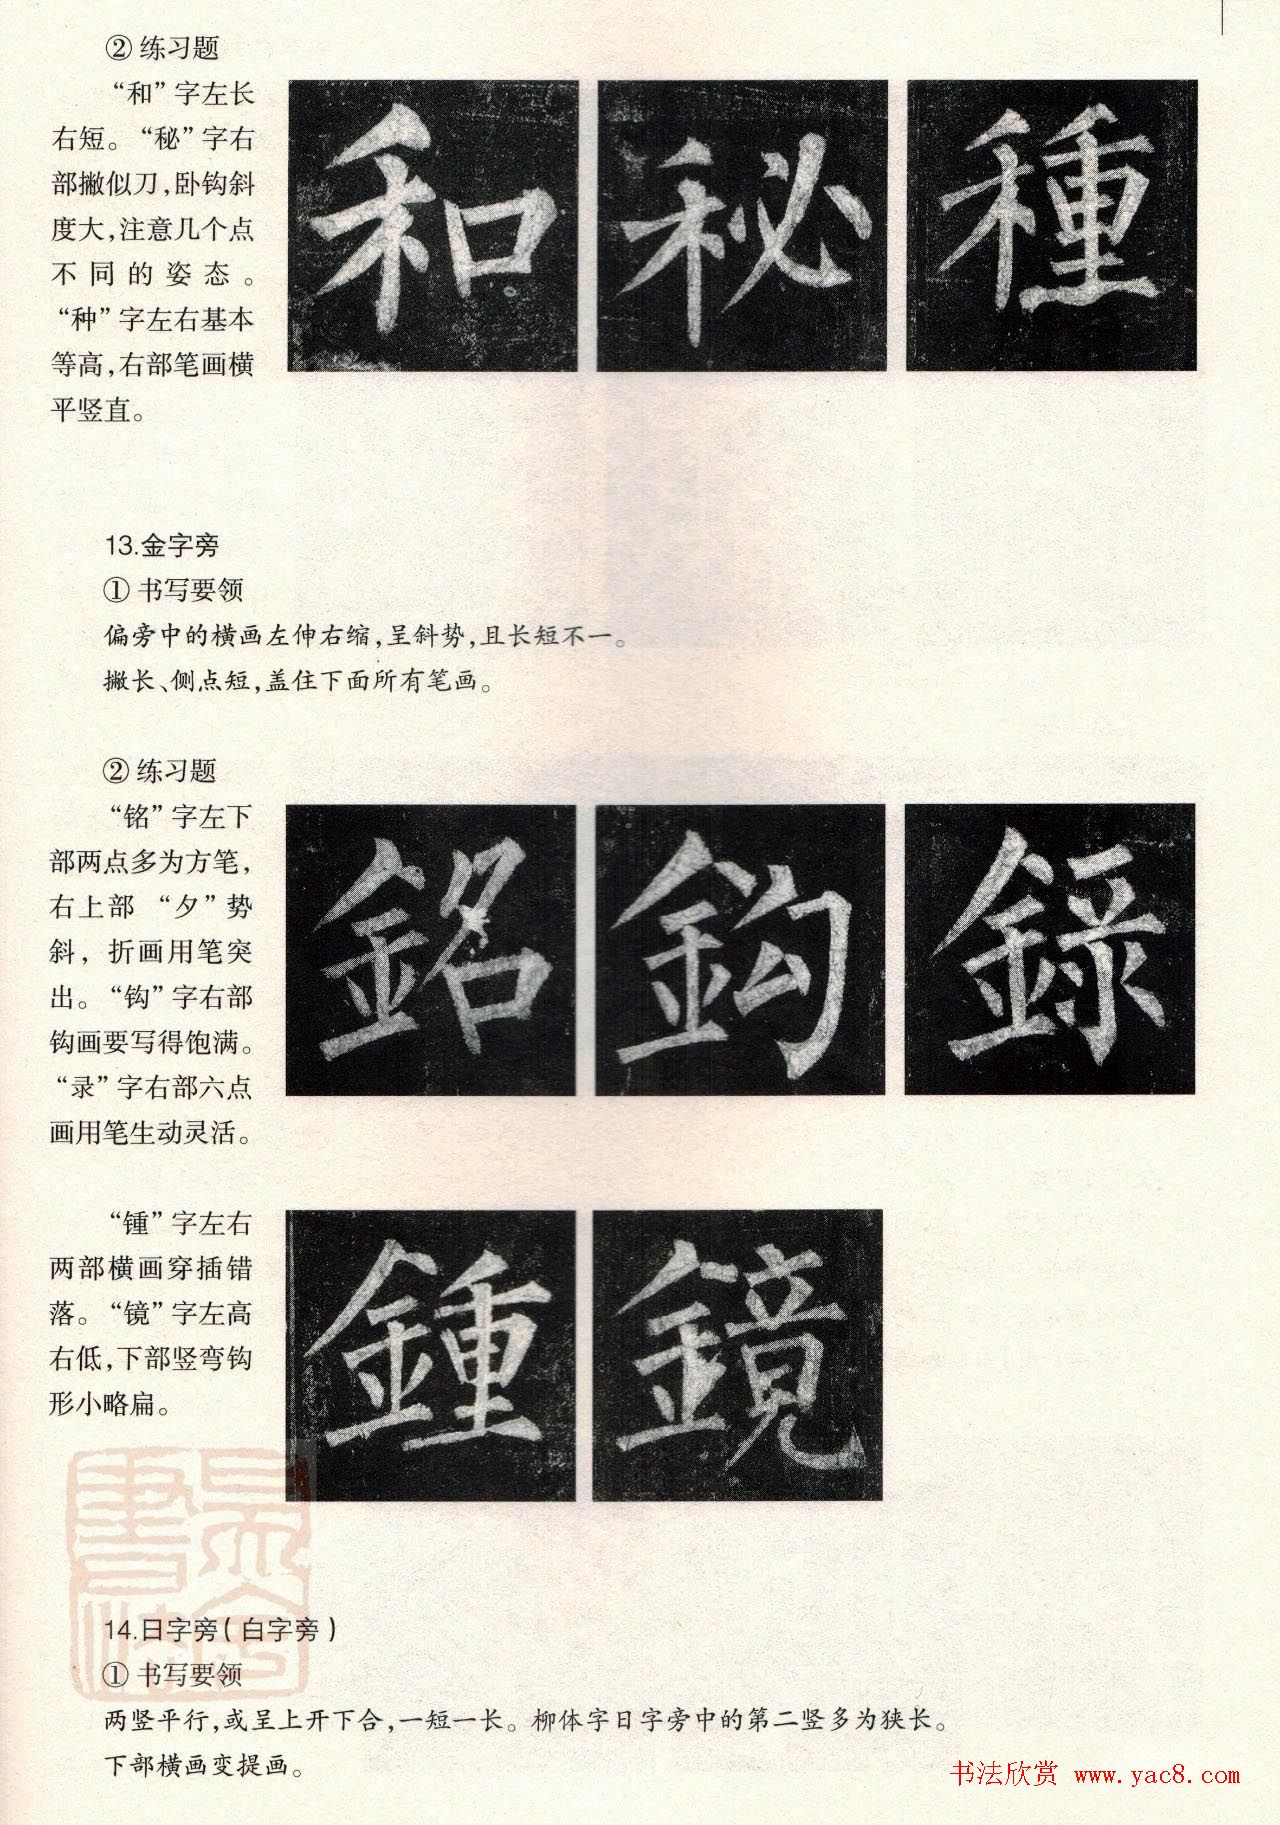 ② 练习题
“和”字左长
右短。“秘”字右
部撇似刀,卧钩斜
度大,注意几个点
不同的姿态。
“种”字左右基本
等高,右部笔画横
平竖直。
和 秘 種
13.金字旁
① 书写要领
偏旁中的横画左伸右缩,呈斜势,且长短不一。
撇长、侧点短,盖住下面所有笔画。
② 练习题
“铭”字左下
部两点多为方笔,
右上部“夕”势
斜,折画用笔突
出。“钩”字右部
钩画要写得饱满。
“录”字右部六点
画用笔生动灵活。
銘 鈎 録
“锺”字左右
两部横画穿插错
落。“镜”字左高
右低,下部竖弯钩
形小略扁。
鍾 鏡
14.日字旁(白字旁)
① 书写要领
两竖平行,或呈上开下合,一短一长。柳体字日字旁中的第二竖多为狭长。
下部横画变提画。
书法欣赏 www.yac8.com